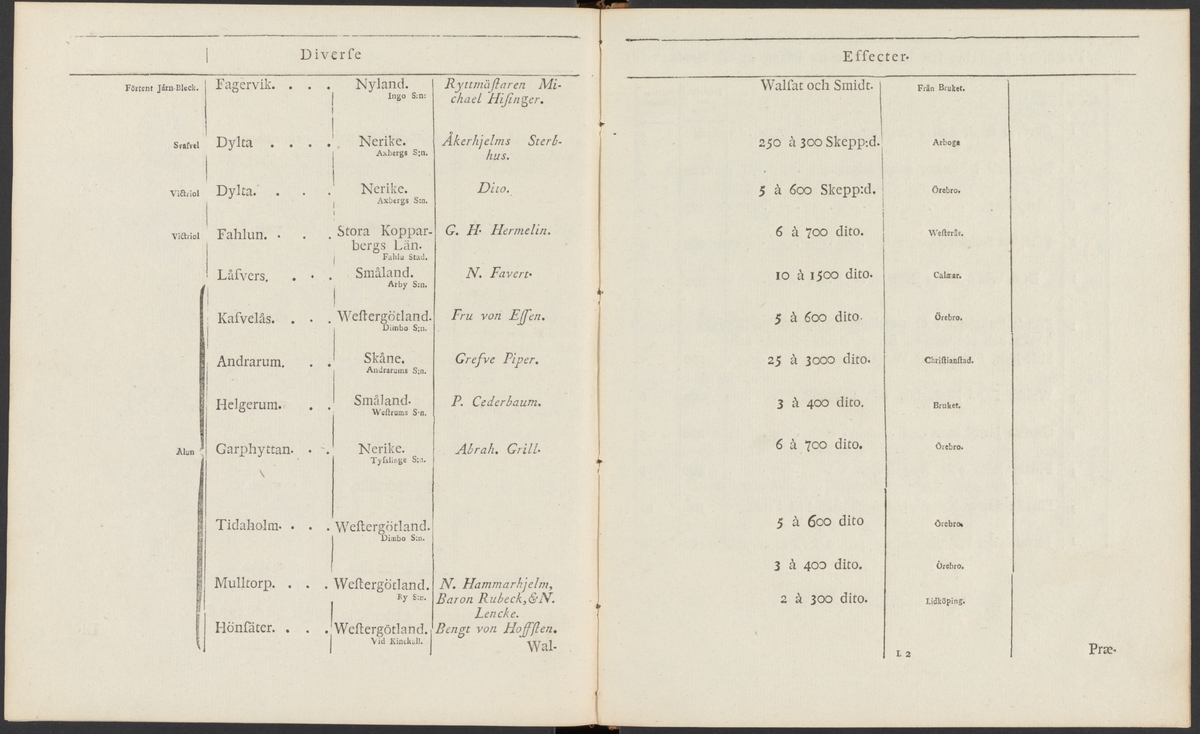 Diverſe
Förtent Järn-Bleck. Fagervik. . . . Nyland. Ryttmäſtaren Mi-
Ingo S:n: chael Hiſinger.
Svafvel Dylta . . . . Nerike. Åkerhjelms Sterb-
Axbergs S:n. hus.
Victriol Dylta. . . . Nerike. Dito.
Axbergs S:n.
Victriol Fahlun. . . . Stora Koppar- G. H. Hermelin.
bergs Län.
Fahlu Stad.
Låfvers. . . . Småland. N. Favert.
Arby S:n.
Kafvelås. . . . Weſtergötland. Fru von Eſſen.
Dimbo S:n.
Andrarum. . . Skåne. Grefve Piper.
Andrarums S:n.
Helgerum. . . Småland. P. Cederbaum.
Weſtrums S:n.
Alun Garphyttan. . . Nerike. Abrah. Grill.
Tyſslinge S:n.
Tidaholm. . . . Weſtergötland.
Dimbo S:n.
Mulltorp. . . . Weſtergötland. N. Hammarhjelm,
Ry S:n. Baron Rubeck, & N.
Lencke.
Hönſäter. . . . Weſtergötland. Bengt von Hoffſten.
Vid Kinckull. Wal-
Effecter.
Walſat och Smidt. Från Bruket.
250 à 300 Skepp:d. Arboga
5 à 600 Skepp:d. Örebro.
6 à 700 dito. Weſterrås.
10 à 1500 dito. Calmar.
5 à 600 dito. Örebro.
25 à 3000 dito. Chriſtianſtad.
3 à 400 dito. Bruket.
6 à 700 dito. Örebro.
5 à 600 dito Örebro.
3 à 400 dito. Örebro.
2 à 300 dito. Lidköping.
L 2 Præ-